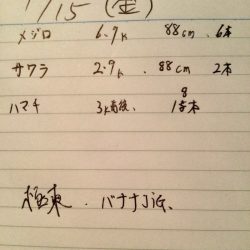 1/15 (金)
メジロ 6.9k 88cm 6本
サワラ 2.9k 88cm 2本
ハマチ 3k前後 18本
極東 バナナJIG、